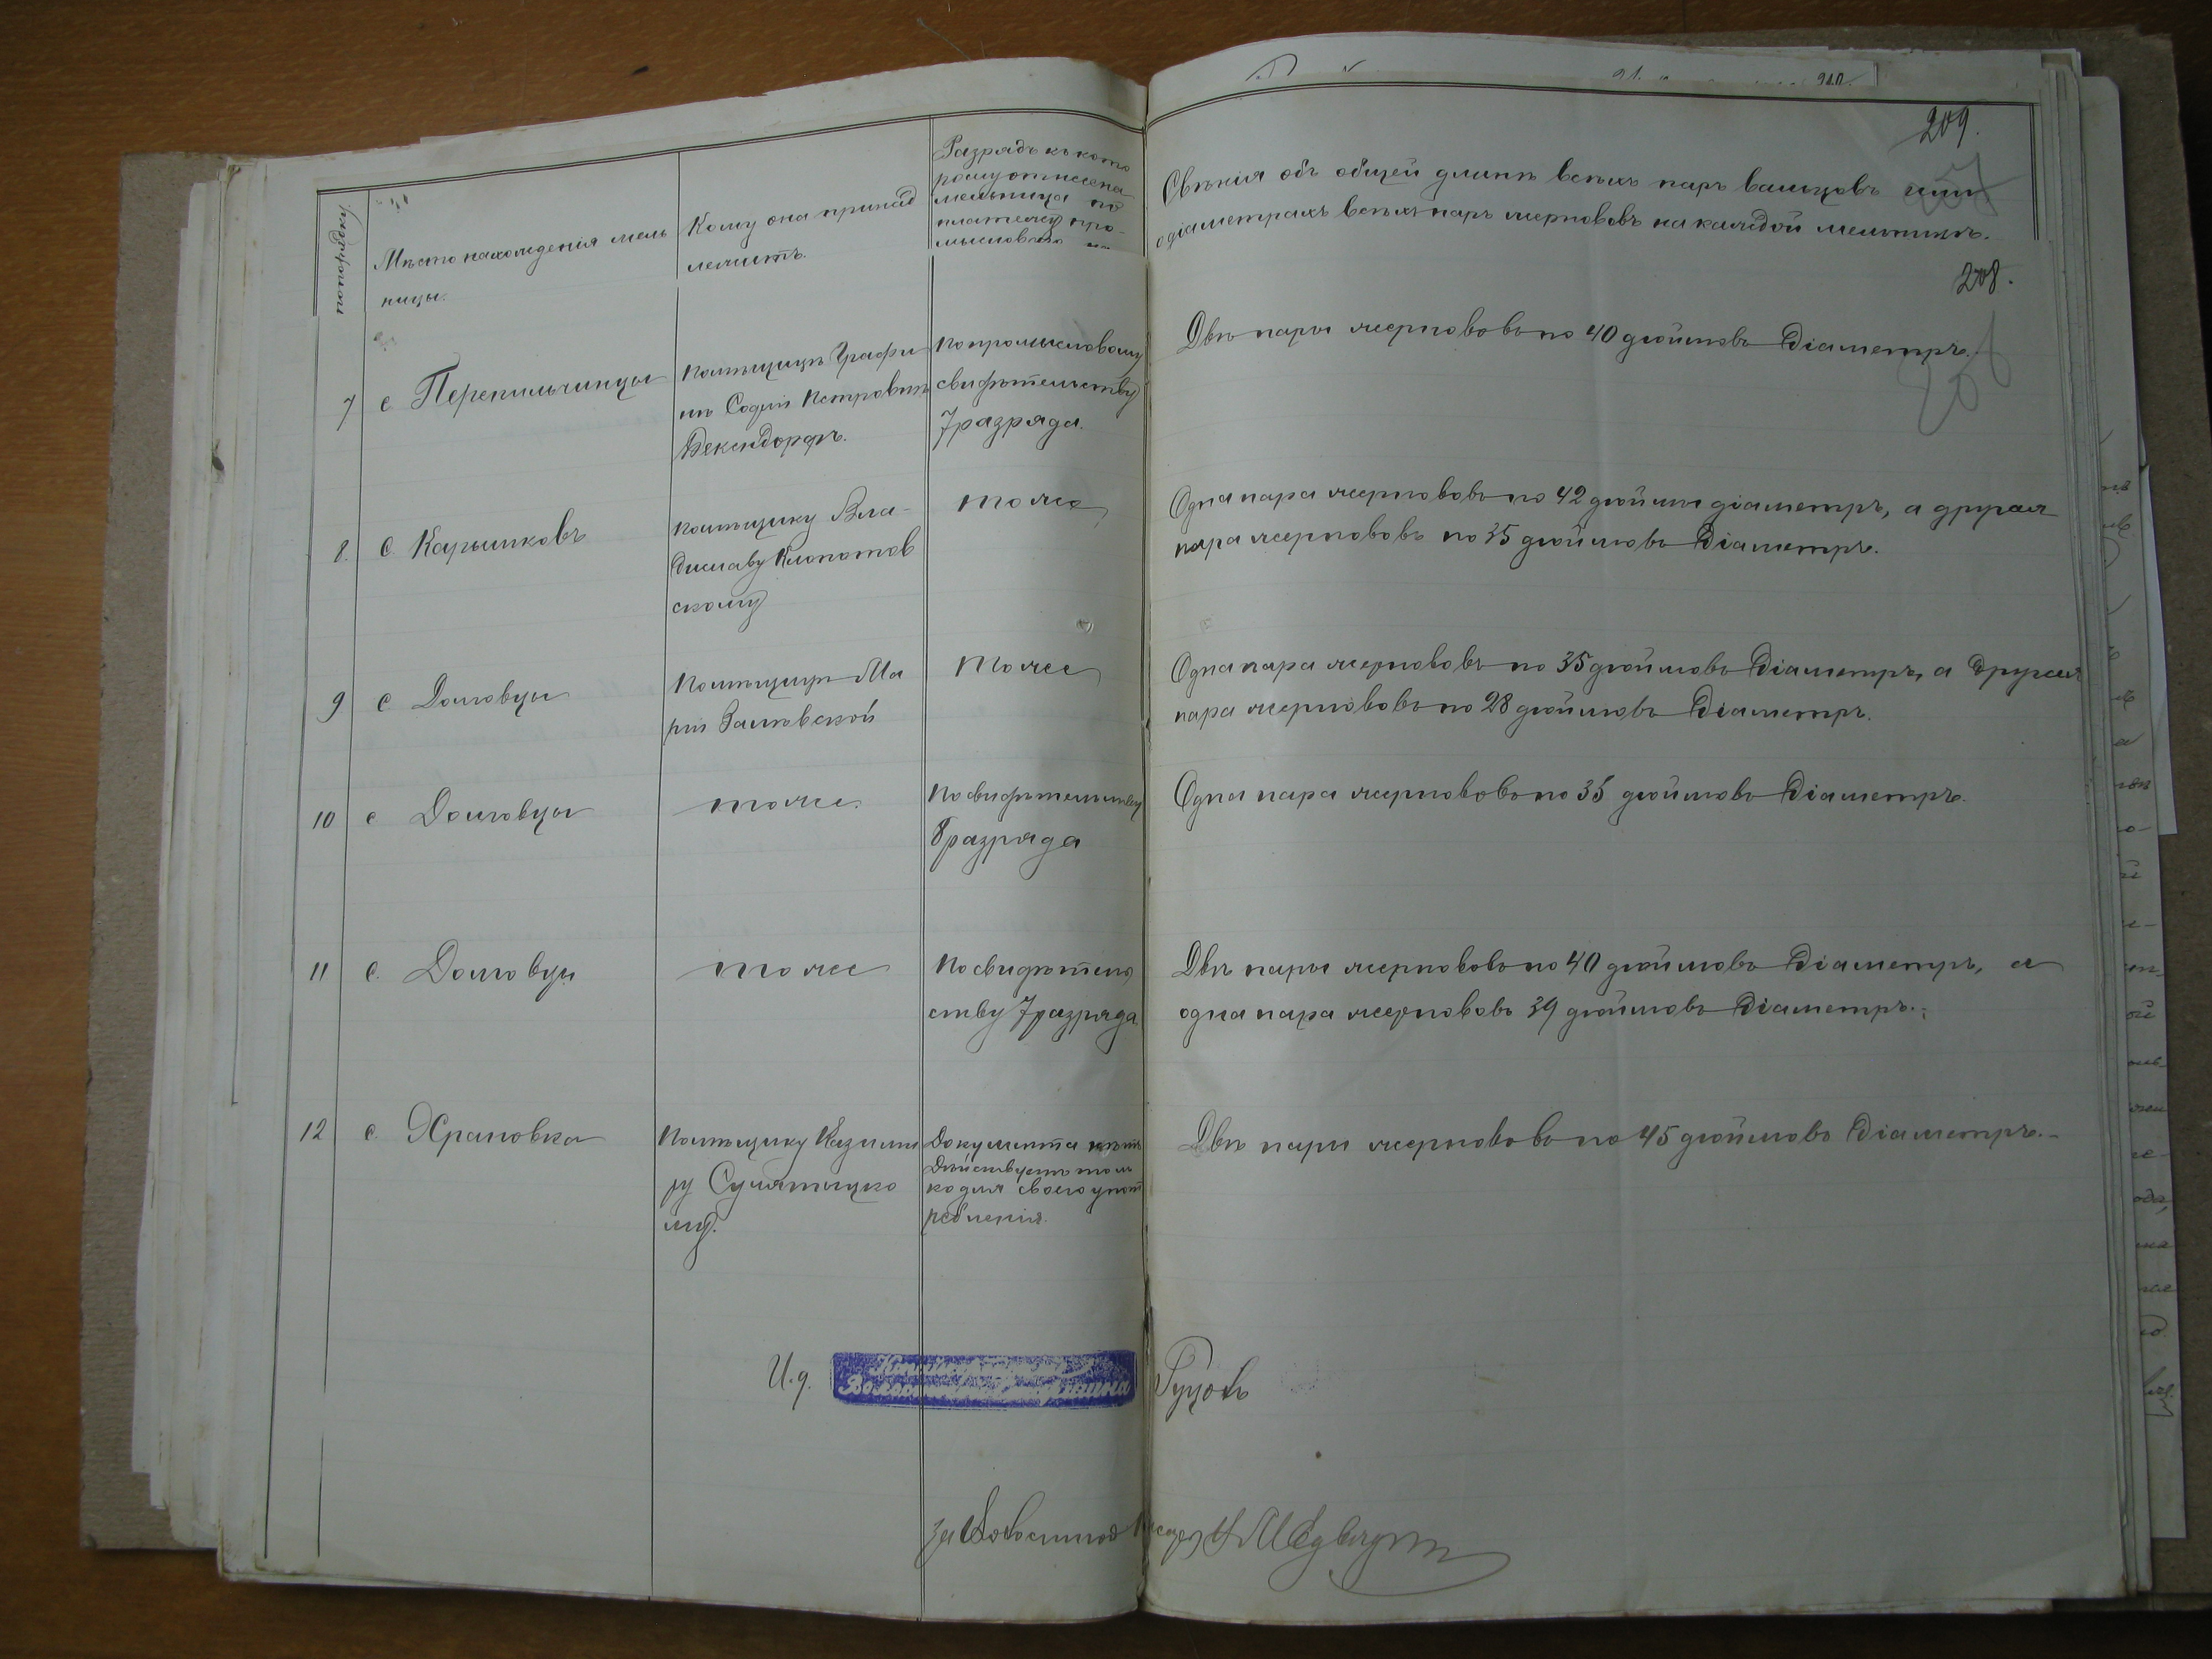 209.
по порядку
Мѣсто нахожденія мель
ницы.
Кому она принад
лежитъ.
Разрядъ къ кото
рому отнесена
мельница по
платежу про-
мысловаго
Свѣнія объ общей длинѣ всѣхъ паръ вальцовъ или
о діаметрахъ всѣхъ паръ жернововъ на каждой мельницѣ.
208.
7 с Перепильчинцы
помѣщицѣ Графи
нѣ Софіи Петровнѣ
Бекендорфъ.
по промысловому
свидѣтельству
7 разряда.
Двѣ пары жернововъ по 40 дюймовъ діаметръ.
8. С. Карышковъ
помѣщику Вла-
диславу Клопотов
скому
тоже
Одна пара жернововъ по 42 дюймы діаметръ, а другая
пара жернововъ по 35 дюймовъ діаметръ.
9 с Долговцы
Помѣщицѣ Ма
ріи Залѣвской
Тоже
Одна пара жернововъ по 35 дюймовъ діаметръ, а другая
пара жернововъ по 28 дюймовъ діаметръ.
10 с Долговцы
тоже.
По свидѣтельству
8 разряда
Одна пара жернововъ по 35 дюймовъ діаметръ.
11 с. Долговцы
тоже
По свидѣтель
ству 7 разряда
Двѣ пары жернововъ по 40 дюймовъ діаметръ, а
одна пара жернововъ 39 дюймовъ діаметръ.
12 с. Храповка
Помѣщику Казими
ру Сулятыцко
му.
Документа нѣтъ
Дѣйствуетъ толь
ко для своего упот
ребленія.
Двѣ пары жернововъ по 45 дюймовъ діаметръ.-
И.д.
Волостнаго Старшина
Гуцолъ
за Волостнаго Писаря